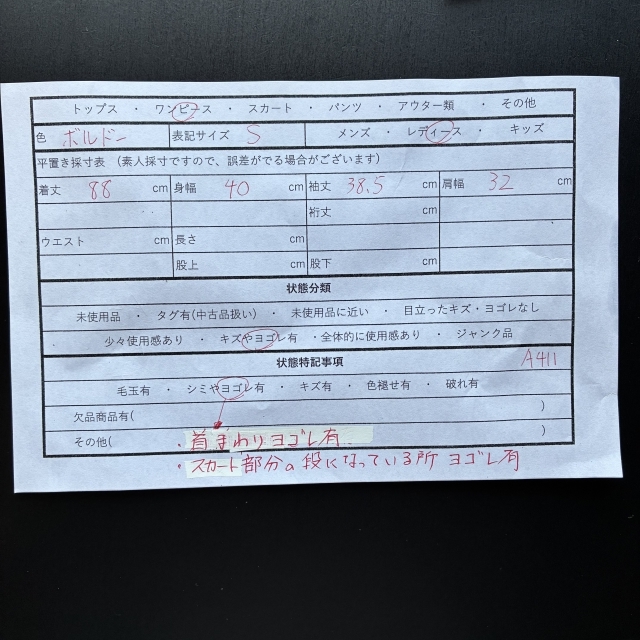 トップス ・ ワンピース ・ スカート ・ パンツ ・ アウター類 ・ その他
色 ボルドー 表記サイズ S メンズ ・ レディース ・ キッズ
平置き採寸表 (素人採寸ですので、誤差がでる場合がございます)
着丈 88 cm 身幅 40 cm 袖丈 38.5 cm 肩幅 32 cm
裄丈 cm
ウエスト cm 長さ cm
股上 cm 股下 cm
状態分類
未使用品 ・ タグ有(中古品扱い) ・ 未使用品に近い ・ 目立ったキズ・ヨゴレなし
少々使用感あり ・ キズやヨゴレ有 ・全体的に使用感あり ・ ジャンク品
状態特記事項 A411
毛玉有 ・ シミやヨゴレ有 ・ キズ有 ・ 色褪せ有 ・ 破れ有
欠品商品有( )
その他( ・首まわりヨゴレ有 )
・スカート部分の段になっている所 ヨゴレ有